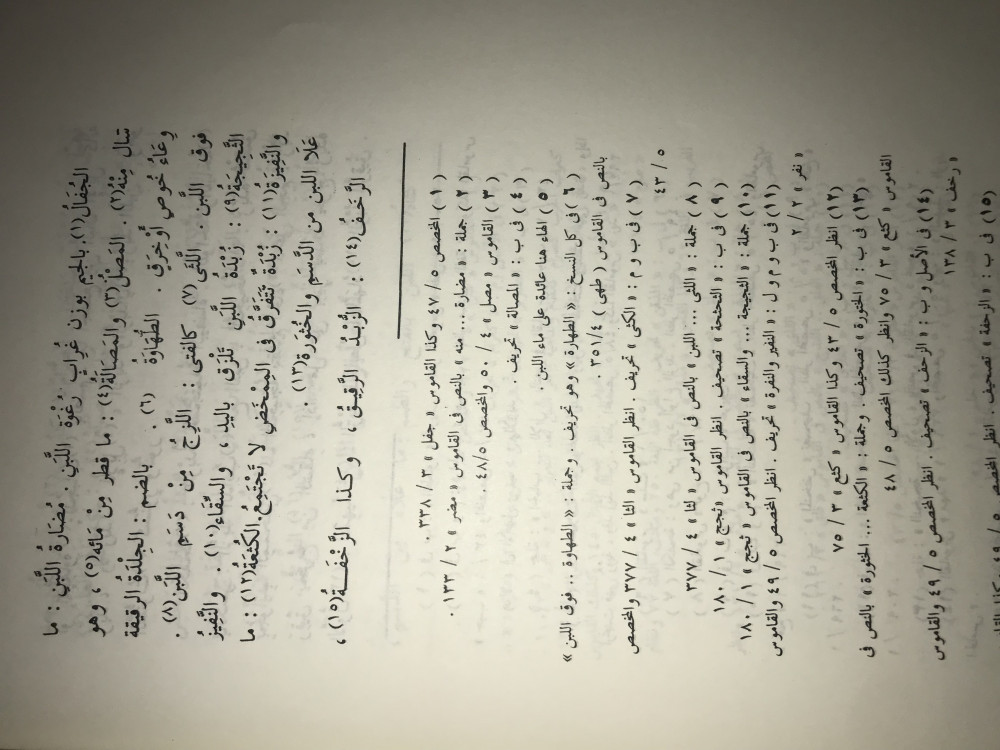 الجُفَالُ(١) بالجيم بوزن غُرابٍ رُغْوَةُ اللَّبَنِ . مُضَارةُ اللَّبَنِ : ما
سال مِنْهُ(٢) . المَصْلُ(٣) والمَصَالَةُ(٤) : ما قطر مِنْ مَائه(٥) ، وهو
وِعَاءُ خُوصٍ أَوْخِرَقٍ . الطُّهَاوَةُ (٦) . بالضم : الجِلْدَةُ الرقيقة
فوق اللبَّن . اللَّثَى (٧) كالفتى : اللَّزِجُ مِنْ دَسَمِ اللَّبَن(٨) .
الثَّجِيجَةُ(٩) : زُبْدَةُ اللَّبَنِ تَلزَق باليَدِ ، والسِّقَاء(١٠) . والنَّفِيرُ
والنَّفِيَرةُ(١١) : زُبْدَةٌ تَتَفَرَّقُ فى الممْخَضِ لا تَجْتَمِعُ. الكُثعَةُ(١٢) : ما
عَلَا اللبن من الدَّسَمِ والخُثورَة(١٣) .
الرَّخفُ(١٤) : الزُّبْدُ الرَّقِيقُ ، وكذا الرَّخْفَــةُ(١٥) ،
( ١ ) المخصص ٥ / ٤٧ وكذا القاموس « جفل » ٣ / ٣٣٨ .
( ٢ ) جملة : « مضارة ... منه » بالنص فى القاموس « مضر » ٢ / ١٣٣ .
( ٣ ) القاموس « مصل » ٤ / ٥٠ والمخصص ٥ /٤٨ .
( ٤ ) فى ب : « المصالة » تحريف .
( ٥ ) الهاء هنا عائدة على ماء اللبن .
( ٦ ) فى كل النسخ : « الطهارة » وهو تحريف . وجملة : « الطهاوة ... فوق اللبن »
بالنص فى القاموس ( طهى ) ٤ /٣٥١ .
( ٧ ) فى ب و م : « الكثى » تحريف . انظر القاموس « لثا » ٤ / ٣٧٧ والمخصص
٥ / ٤٣
( ٨ ) جملة : « اللثى ... اللبن » بالنص فى القاموس « لثا » ٤ / ٣٧٧
( ٩ ) فى ب : « الثحثحة » تصحيف . انظر القاموس « ثجج » ١ / ١٨٠
(١٠) جملة : « الثجيجة ... والسقاء » بالنص فى القاموس « ثجج » ١ / ١٨٠
(١١) فى ب و م و ل : « النفير والنفرة » تحريف . انظر المخصص ٥ / ٤٩ والقاموس
« نفر » ٢ /
(١٢) انظر المخصص ٥ / ٤٣ وكذا القاموس « كثع » ٣ / ٧٥
(١٣) فى ب : « الختورة » تصحيف . وجملة : « الكثعة ... الخثورة » بالنص فى
القاموس « كثع » ٣ / ٧٥ وانظر كذلك المخصص ٥ / ٤٨
(١٤) فى الأصل و ب : « الزحف » تصحيف . انظر المخصص ٥ / ٤٩ والقاموس
« رخف » ٣ / ١٣٨
(١٥) فى ب : « الزحفة » تصحيف . انظر المخصص ٥ / ٤٩ وكذا